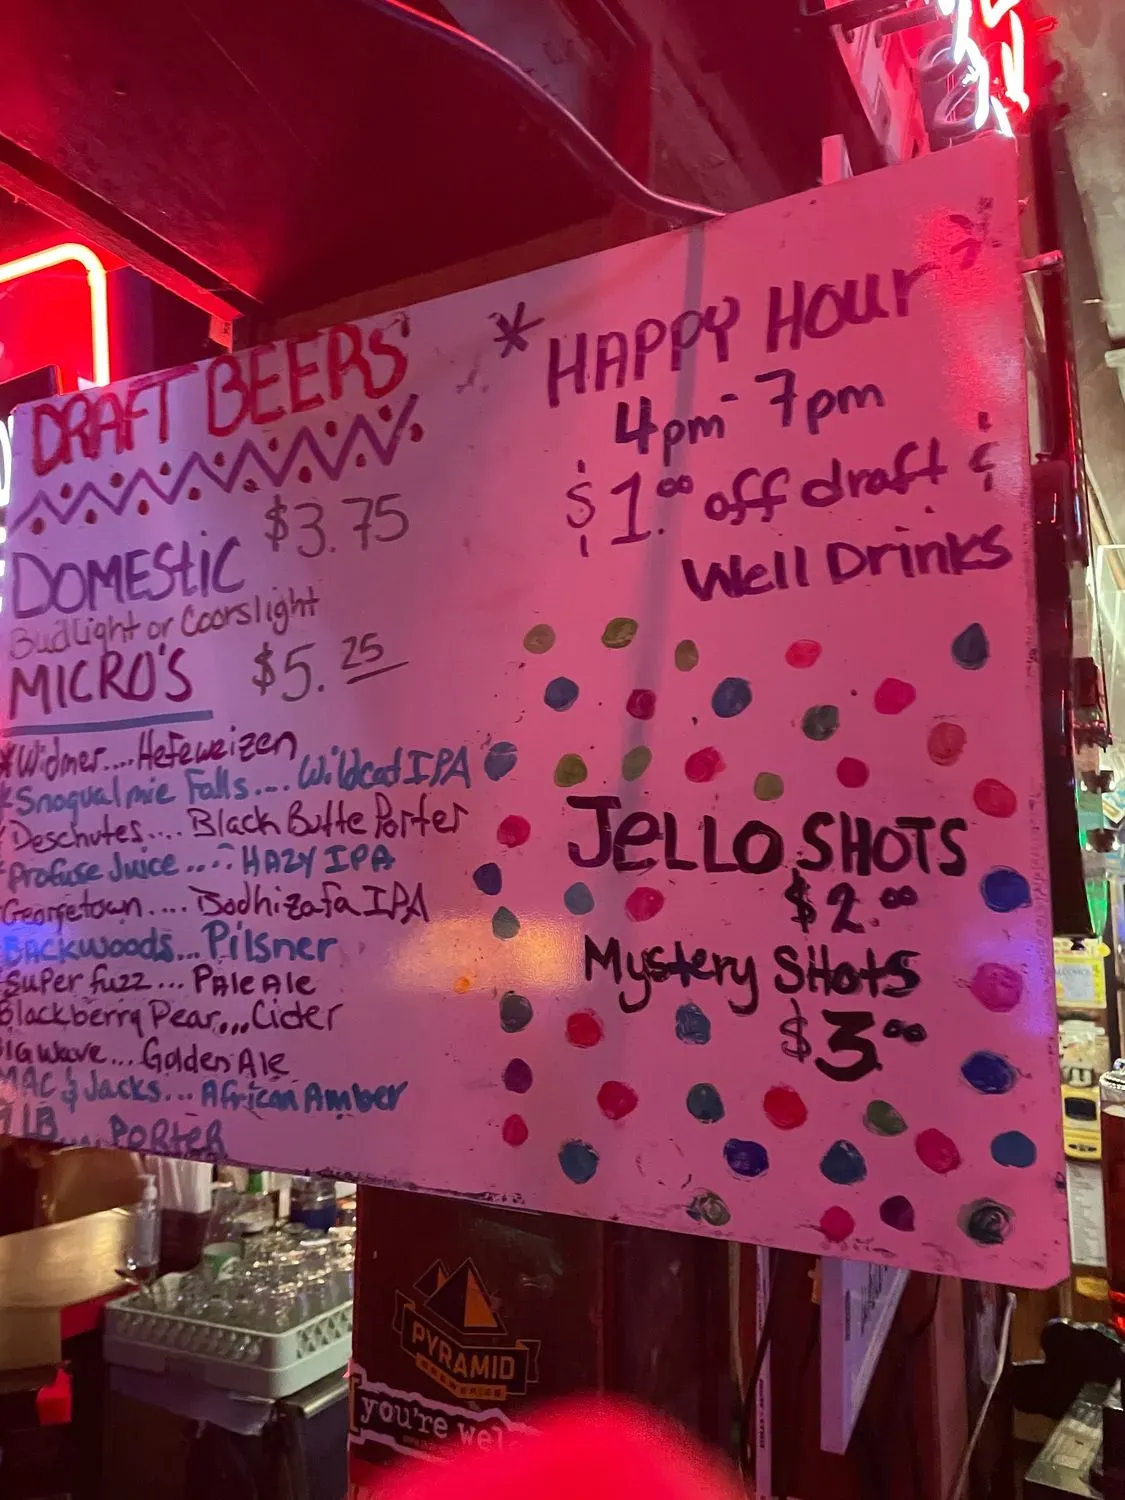 DRAFT BEERS
$3.75
DOMEStiC
BudLight or Coorslight
MICRO'S $5.25
*Widmer....Hefeweizen
*Snoqualmie Falls.... Wildcat IPA
Deschutes.... Black Butte Porter
Profuse Juice....: HAZY IPA
Georgetown.... Bodhizafa IPA
BACKwooDS... Pilsner
Super fuzz... PAle Ale
Blackberry Pear... Cider
BIG WAVE... Golden Ale
MAC & Jacks... African Amber
9 LB.... PORteR
* HAPPY HOUR *
4pm - 7pm
$1.00 off draft &
Well DRinks
JeLLO SHOTS
$2.00
Mystery SHotS
$3.00
PYRAMID
BREWERIES
you're wel